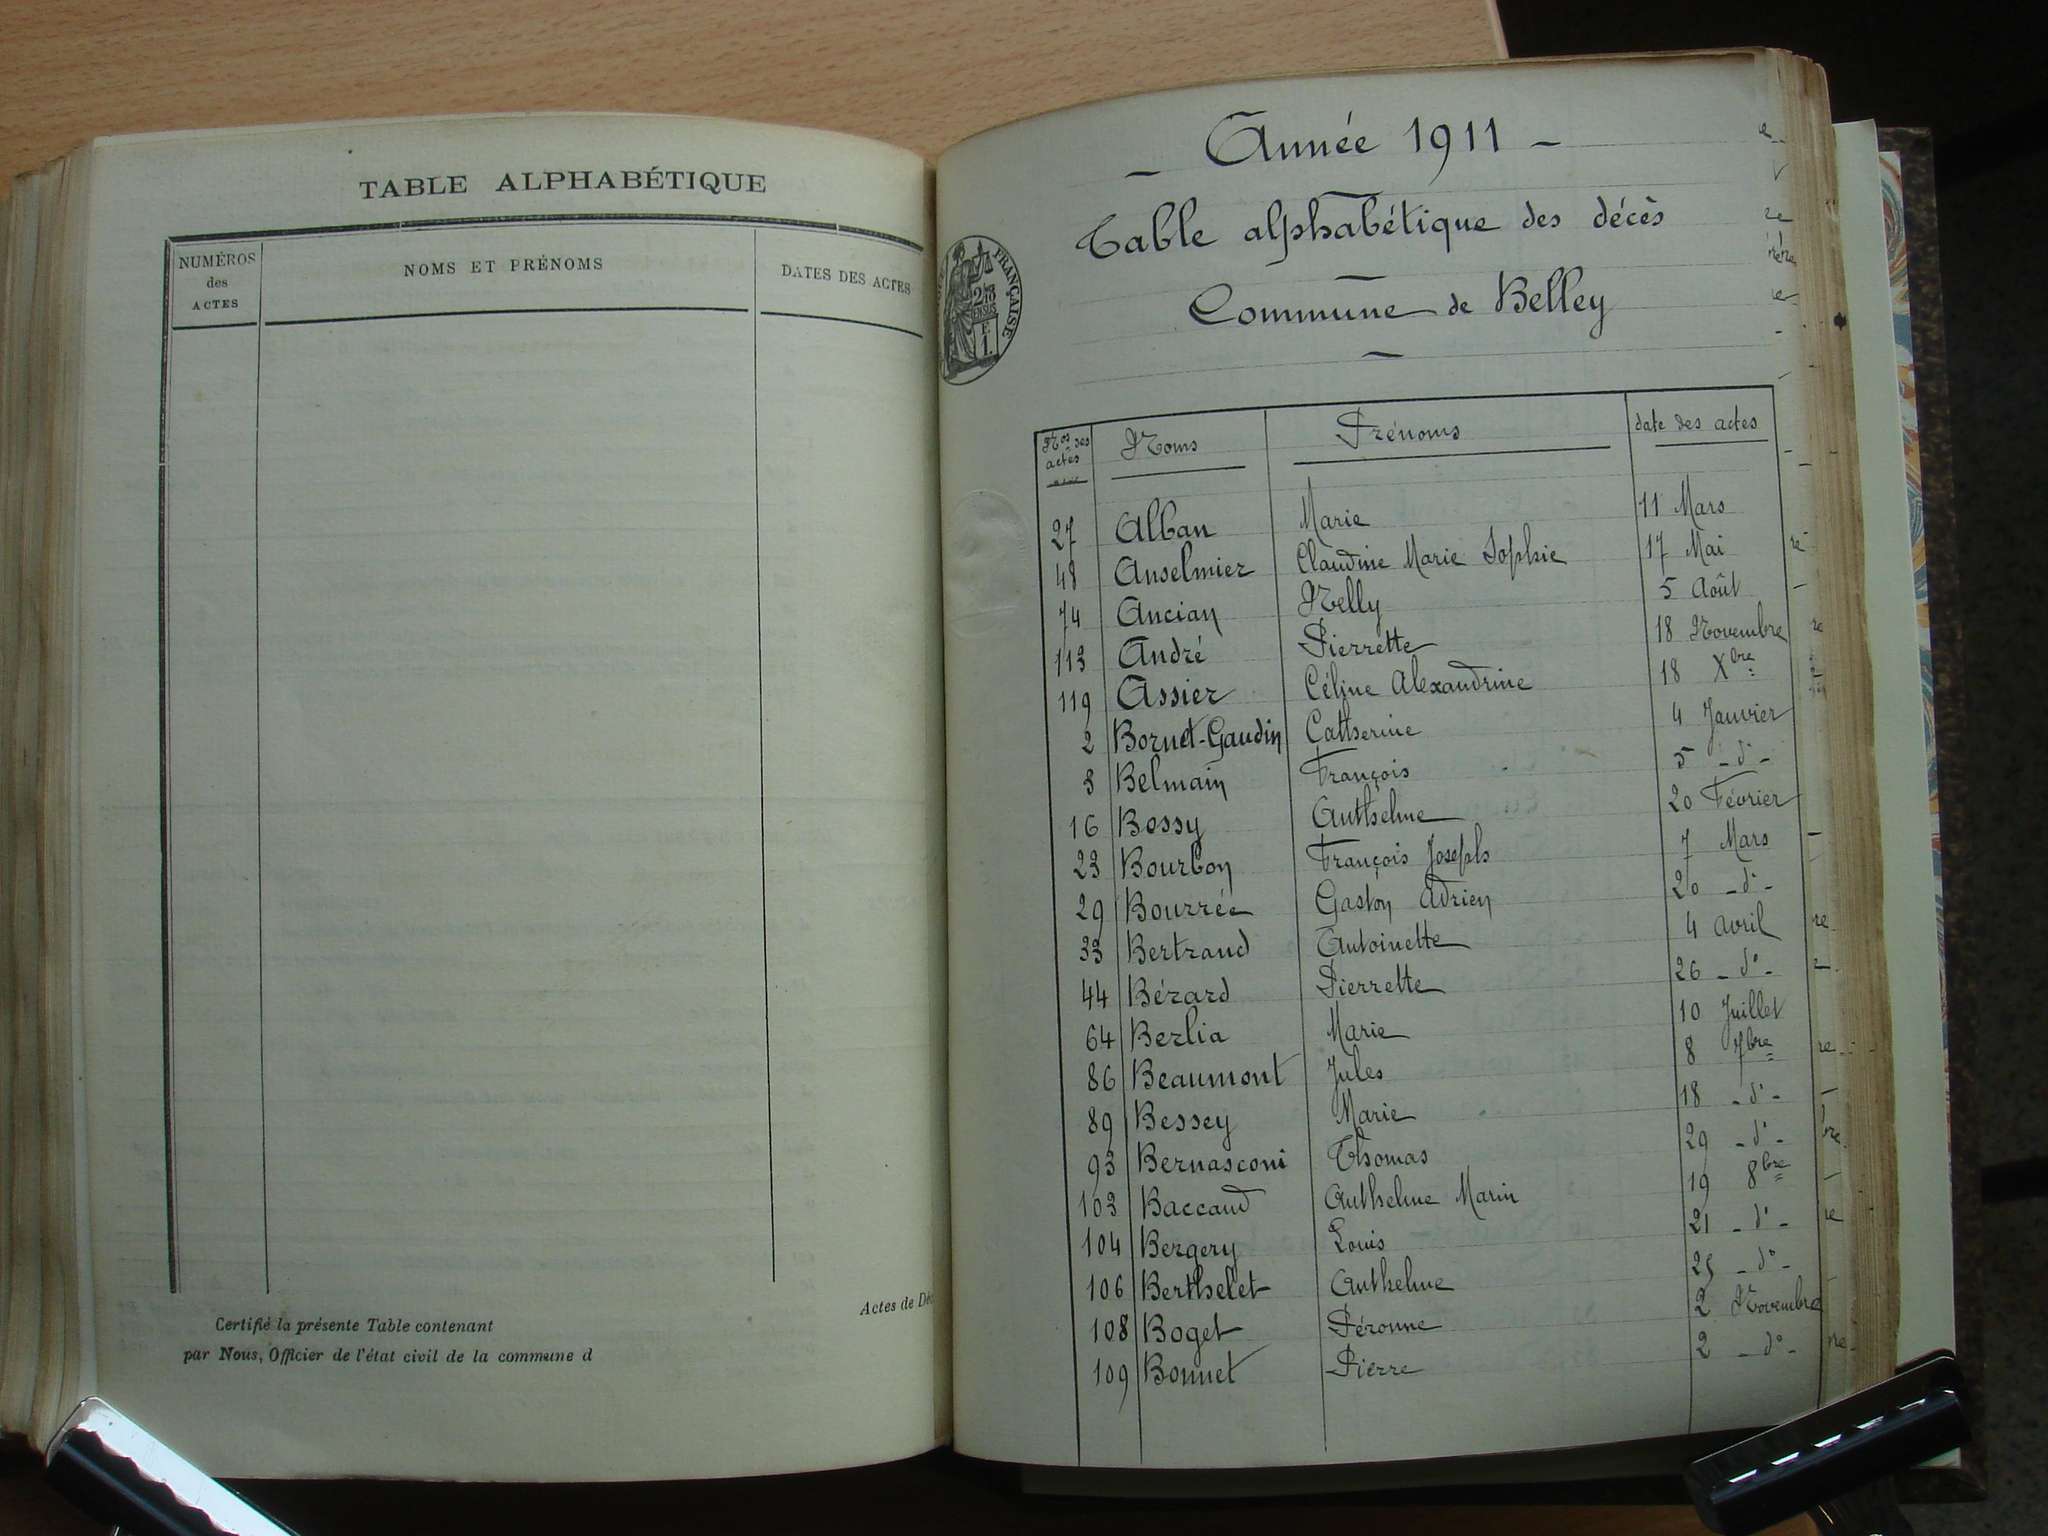 TABLE ALPHABÉTIQUE
NUMÉROS des ACTES | NOMS ET PRÉNOMS | DATES DES ACTES
Certifié la présente Table contenant
par Nous, Officier de l'état civil de la commune d
Actes de Déc
FRANÇAISE
2/10
EN SUS
F.
1.
– Année 1911 –
Table alphabétique des décès
Commune de Belley
Nos des actes | Noms | Prénoms | date des actes
27 Alban Marie 11 Mars
48 Anselmier Claudine Marie Sophie 17 Mai
74 Ancian Nelly 5 Août
113 André Pierrette 18 Novembre
119 Assier Céline Alexandrine 18 Xbre
2 Bornet-Gaudin Catherine 4 Janvier
3 Belmain François 5 – d° –
16 Bossy Anthelme 20 Février
23 Bourbon François Joseph 7 Mars
29 Bourrée Gaston Adrien 20 – d° –
33 Bertrand Antoinette 4 Avril
44 Bérard Pierrette 26 – d° –
64 Berlia Marie 10 Juillet
86 Beaumont Jules 8 7bre
89 Bessey Marie 18 – d° –
93 Bernasconi Thomas 29 – d° –
103 Baccaud Anthelme Marin 19 8bre
104 Bergery Louis 21 – d° –
106 Berthelet Anthelme 25 – d° –
108 Boget Péronne 2 Novembre
109 Bonnet Pierre 2 – d° –